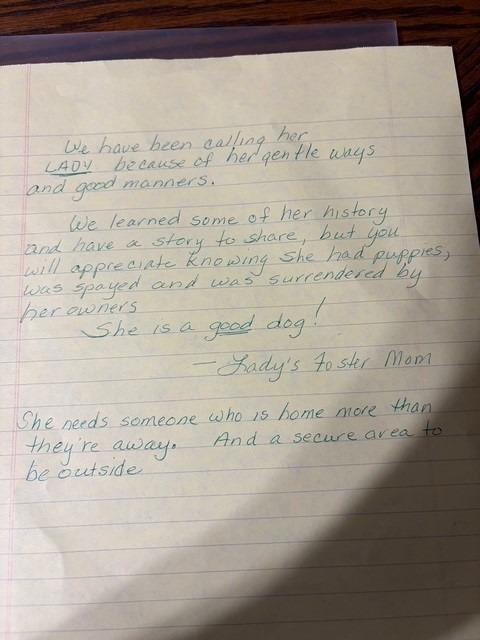 We have been calling her
LADY because of her gentle ways
and good manners.
We learned some of her history
and have a story to share, but you
will appreciate knowing she had puppies,
was spayed and was surrendered by
her owners
She is a good dog!
— Lady's Foster Mom
She needs someone who is home more than
they're away. And a secure area to
be outside